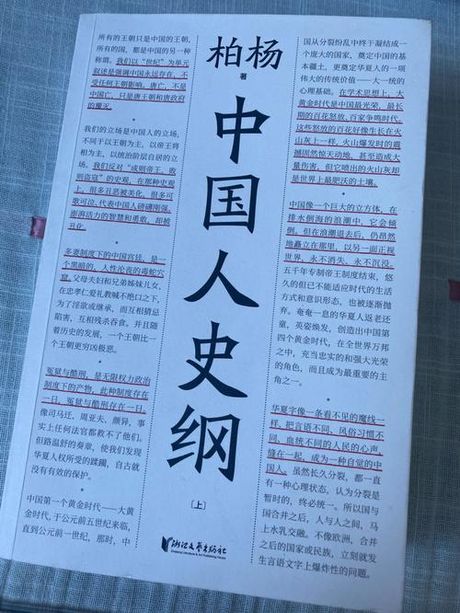 柏杨
著
中国人史纲
[上]
浙江文艺出版社
所有的王朝只是中国的王朝,
所有的国,都是中国的另一种
称谓。我们以“世纪”为单元
叙述是强调中国永远存在,不
受任何王朝影响。唐亡,不是
中国亡,只是唐王朝和唐政府
的覆灭。
我们的立场是中国人的立场,
不同于以王朝为主,以帝王将
相为主,以统治阶层自居的立
场。我们反对“成则帝王,败
则盗寇”的史观。在那种史观
上,很多丑恶被美化,很多可
歌可泣、代表中国人磅礴刚强、
澎湃活力的智慧和勇敢,却被
丑化。
多妻制度下的中国宫廷,是一
个黑暗的、人性沦丧的毒蛇穴
窟。父母夫妇和兄弟姊妹儿女,
在忠孝仁爱礼教喊不绝口之下,
为了淫欲或继承,而互相猜忌
陷害,互相残杀吞食。并且随
着历史的发展,一个王朝比一
个王朝更穷凶极恶。
冤狱与酷刑,是无限权力政治
制度下的产物,此种制度存在
一日,冤狱与酷刑存在一日。
像司马迁、周亚夫、颜异,事
实上任何法官都救不了他们。
但路温舒的奏章,使我们发现
华夏人权所受的蹂躏,自古就
没有有效的保护。
中国第一个黄金时代——大黄
金时代,于公元前五世纪来临,
直到公元前一世纪。那时,中
国从分裂纷乱中终于凝结成一
个庞大的国家,奠定中国的基
本疆土,更奠定华夏人的一项
伟大的传统价值——大一统的
心理基础。在学术思想上,大
黄金时代是中国最光荣、最长
期的百花怒放、百家争鸣时代。
这些怒放的百花好像生长在火
山灰上一样,火山爆发时的震
撼固然惊天动地,甚至造成大
量伤害,但它喷出的火山灰却
是世界上最肥沃的土壤。
中国像一个巨大的立方体,在
排水倒海的浪潮中,它会倾
倒。但在浪潮退去后,仍昂然
地矗立在那里,以另一面正视
世界,永不消失、永不沉没。
五千年专制帝王制度结束,悠
久的但已不能适应时代的生活
方式和意识形态,也被逐渐抛
弃。奄奄一息的华夏人返老还
童,英姿焕发,创造出中国第
四个黄金时代,在全世界万邦
之中,充当忠实的和强大光荣
的角色,而且成为最重要的主
角之一。
华夏字像一条看不见的魔线一
样,把言语不同、风俗习惯不
同、血统不同的人民的心声,
缝在一起,成为一种自觉的中
国人。虽然长久分裂,都一直
有一种心理状态,认为分裂是
暂时的,终必统一。所以国与
国合并之后,人与人之间,马
上水乳交融。不像欧洲,合并
之后的国家或民族,立刻就发
生言语文字上爆炸性的问题。